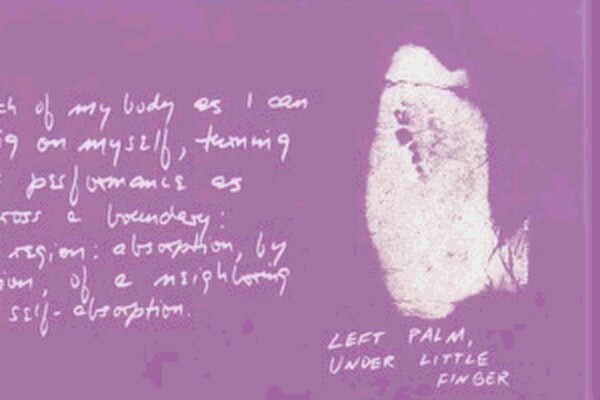 ch of my body as I can
ng on myself, turning
performance as
ross a boundary:
region: absorption, by
ion, of a neighboring
self-absorption.
LEFT PALM,
UNDER LITTLE
FINGER